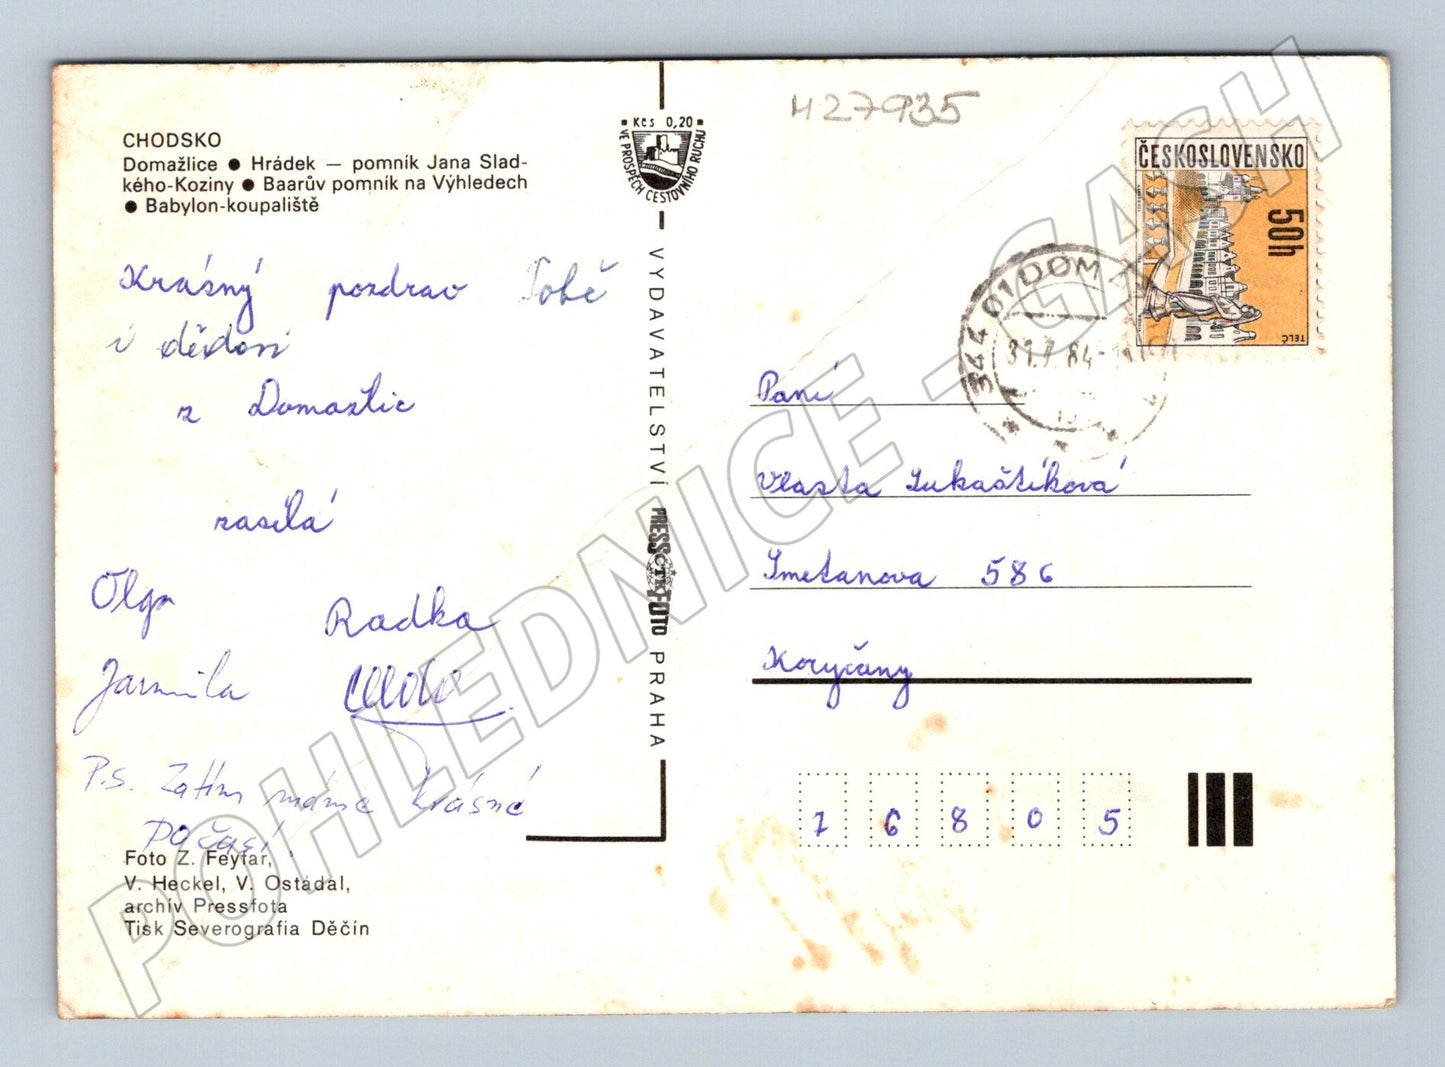 CHODSKO
Domažlice ● Hrádek — pomník Jana Slad-
kého-Koziny ● Baarův pomník na Výhledech
● Babylon-koupaliště
Krásný pozdrav Tobě
i dědovi
z Domažlic
zasílá
Olga Radka
Jarmila
P.S. Zatím máme krásné
počasí
Foto Z. Feyfar,
V. Heckel, V. Ostádal,
archív Pressfota
Tisk Severografia Děčín
Kčs 0,20
VE PROSPĚCH CESTOVNÍHO RUCHU
VYDAVATELSTVÍ PRESSFOTO PRAHA
ČTK
H27935
ČESKOSLOVENSKO
50h
TELČ
344 01 DOM
31.7.84
Paní
Vlasta Lukaštíková
Smetanova 586
Koryčany
76805
POHLEDNICE - GASH